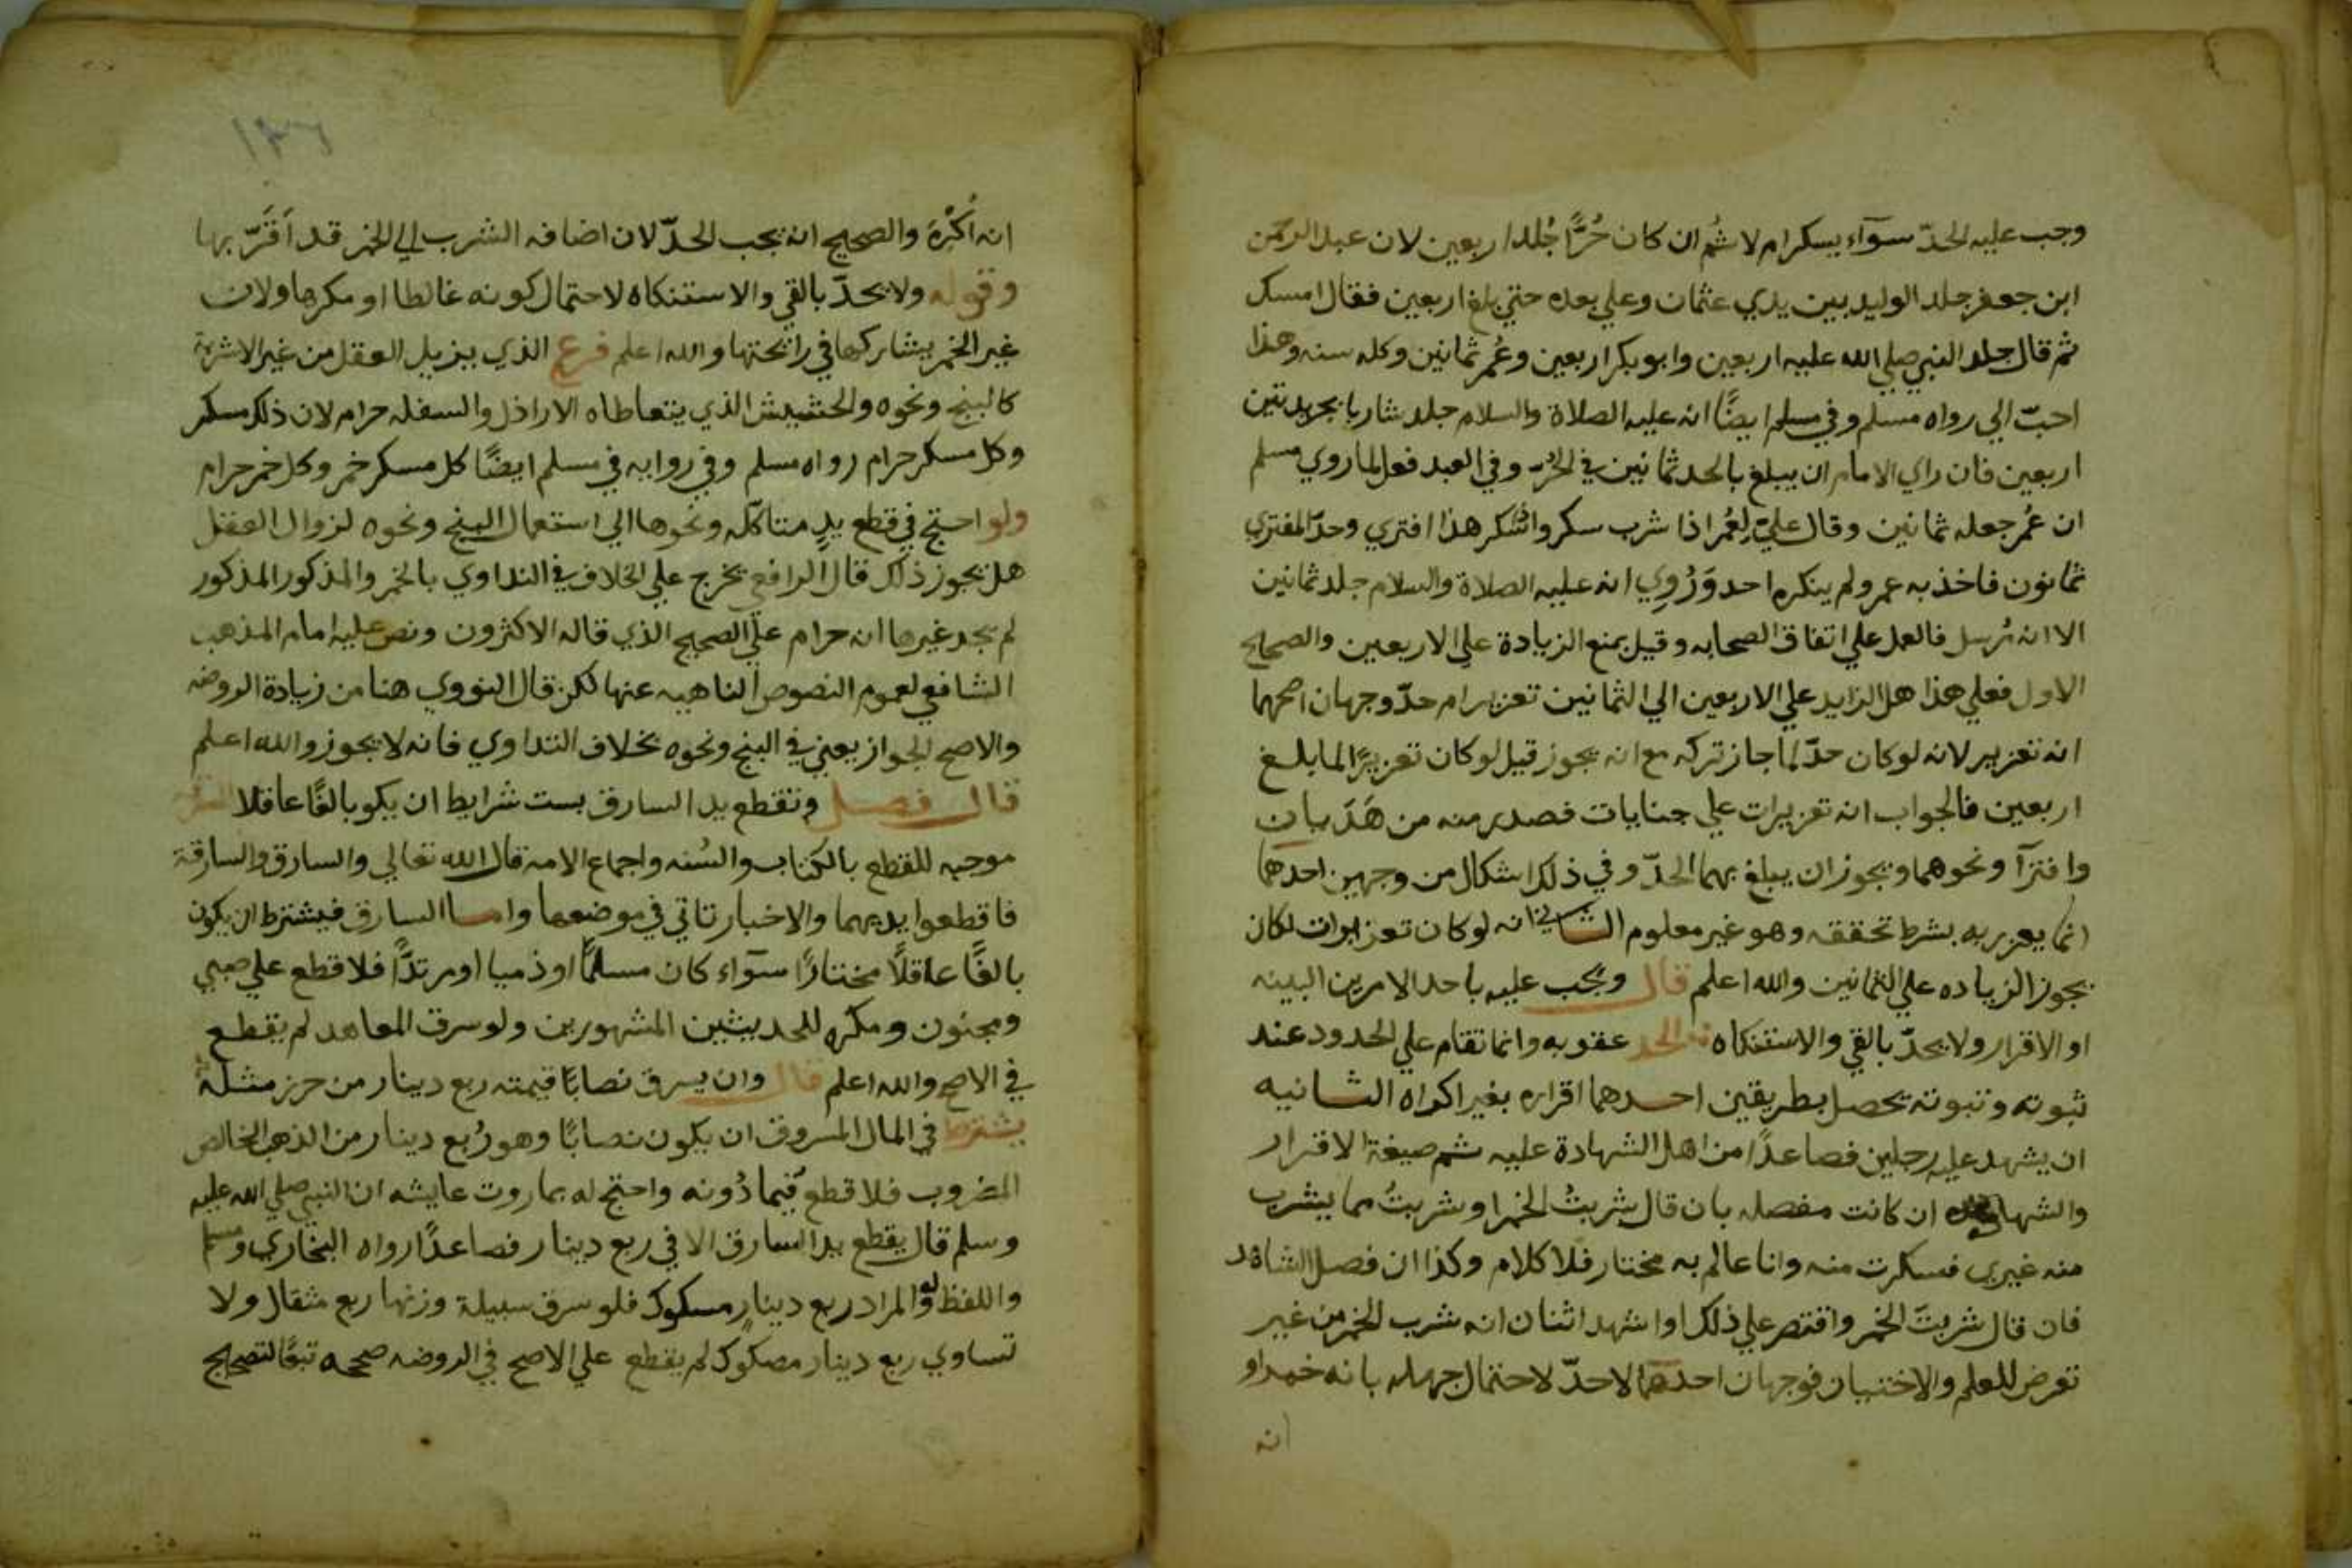 وجب عليه الحدّ سوآء يسكر ام لا ثم ان كان حُرًّا جُلد اربعين لان عبد الرحمن
ابن جعفر جلد الوليد بين يدي عثمان وعلي يعده حتي بلغ اربعين فقال امسك
ثم قال جلد النبي صلي الله عليه اربعين وابو بكر اربعين وعُمر ثمانين وكله سنه وهذا
احبّ الي رواه مسلم وفي مسلم ايضًا انه عليه الصلاة والسلام جلد شاربا بجريدتين
اربعين فان راي الامام ان يبلغ بالحد ثمانين في الحُرّ وفي العبد فعل لما روي مسلم
ان عُمر جعله ثمانين وقال عليّ لِعُمر اذا شرب سكر واذا سكر هذا افتري وحدّ المفتري
ثمانون فاخذ به عمر ولم ينكره احد وَرُوِي انه عليه الصلاة والسلام جلد ثمانين
الا انه مُرسل فالعمل علي اتفاق الصحابه وقيل بمنع الزيادة علي الاربعين والصحيح
الاول فعلي هذا هل الزايد علي الاربعين الي الثمانين تعزير ام حدّ وجهان اصحهما
انه تعزير لانه لو كان حدّ لما جاز تركه مع انه يجوز قيل لو كان تعزيرًا لما بلغ
اربعين فالجواب انه تعزيرات علي جنايات فصدر منه من هَذَيان
وافترآ ونحوهما ويجوز ان يبلغ بهما الحدّ وفي ذلك اشكال من وجهين احدهما
انما يعزر به بشرط تحققه وهو غير معلوم الثاني انه لو كان تعزيرات لكان
يجوز الزياده علي الثمانين والله اعلم قال ويجب عليه باحد الامرين البينه
او الاقرار ولا يحدّ بالقي والاستنكاه الحد عقوبه وانما تقام علي الحدود عند
ثبوته وثبوته يحصل بطريقين احدهما اقراره بغير اكراه الثانيه
ان يشهد عليه رجلين فصاعدًا من اهل الشهادة عليه ثم صيغة الاقرار
والشهاده ان كانت مفصله بان قال شربتُ الخمر او شربتُ مما يشرب
منه غيري فسكرت منه وانا عالم به مختار فلا كلام وكذا ان فصل الشاهد
فان قال شربتَ الخمر واقتصر علي ذلك او شهد اثنان انه شرب الخمر من غير
تعرض للعلم والاختيار فوجهان احدهما لا حدّ لاحتمال جهله بانه خمر او
انه
١٣٦
انه أُكْرِهَ والصحيح انه يجب الحدّ لان اضافه الشرب الي الخمر قد أَقَرَّ بها
وقوله ولا يحدّ بالقي والاستنكاه لاحتمال كونه غالطا او مكرها ولان
غير الخمر يشاركها في رائحتها والله اعلم فرع الذي يزيل العقل من غير الاشربة
كالبنج ونحوه والحشيش الذي يتعاطاه الاراذل والسفله حرام لان ذلك مسكر
وكل مسكر حرام رواه مسلم وفي روايه في مسلم ايضًا كل مسكر خمر وكل خمر حرام
ولو احتج في قطع يد متاكله ونحوها الي استعمال البنج ونحوه لزوال العقل
هل يجوز ذلك قال الرافعي يخرج علي الخلاف في التداوي بالخمر والمذكور المذكور
لم يجد غيرها انه حرام علي الصحيح الذي قاله الاكثرون ونص عليه امام المذهب
الشافعي لعموم النصوص الناهيه عنها لكن قال النووي هنا من زيادة الروضه
والاصح الجواز يعني في البنج ونحوه بخلاف التداوي فانه لا يجوز والله اعلم
قال فصل وتقطع يد السارق بست شرايط ان يكو بالغًا عاقلا السرقة
موجبه للقطع بالكتاب والسُنه واجماع الامه قال الله تعالي والسارق والسارقة
فاقطعوا يديهما والاخبار تاتي في موضعها واما السارق فيشترط ان يكون
بالغًا عاقلًا مختارًا سوآء كان مسلمًا او ذميا او مرتدًّا فلا قطع علي صبي
ومجنون ومكره للحديثين المشهورين ولو سرق المعاهد لم يقطع
في الاصح والله اعلم قال وان يسرق نصابًا قيمته ربع دينار من حرز مثله
يشترط في المال المسروق ان يكون نصابًا وهو رُبع دينار من الذهب الخالص
المضروب فلا قطع فيما دُونه واحتج له بما روت عايشه ان النبي صلي الله عليه
وسلم قال يقطع يد السارق الا في ربع دينار فصاعدًا رواه البخاري ومسلم
واللفظ له والمراد ربع دينار مسكوك فلو سرق سبيلة وزنها ربع مثقال ولا
تساوي ربع دينار مصكوك لم يقطع علي الاصح في الروضه صححه تبعًا لتصحيح